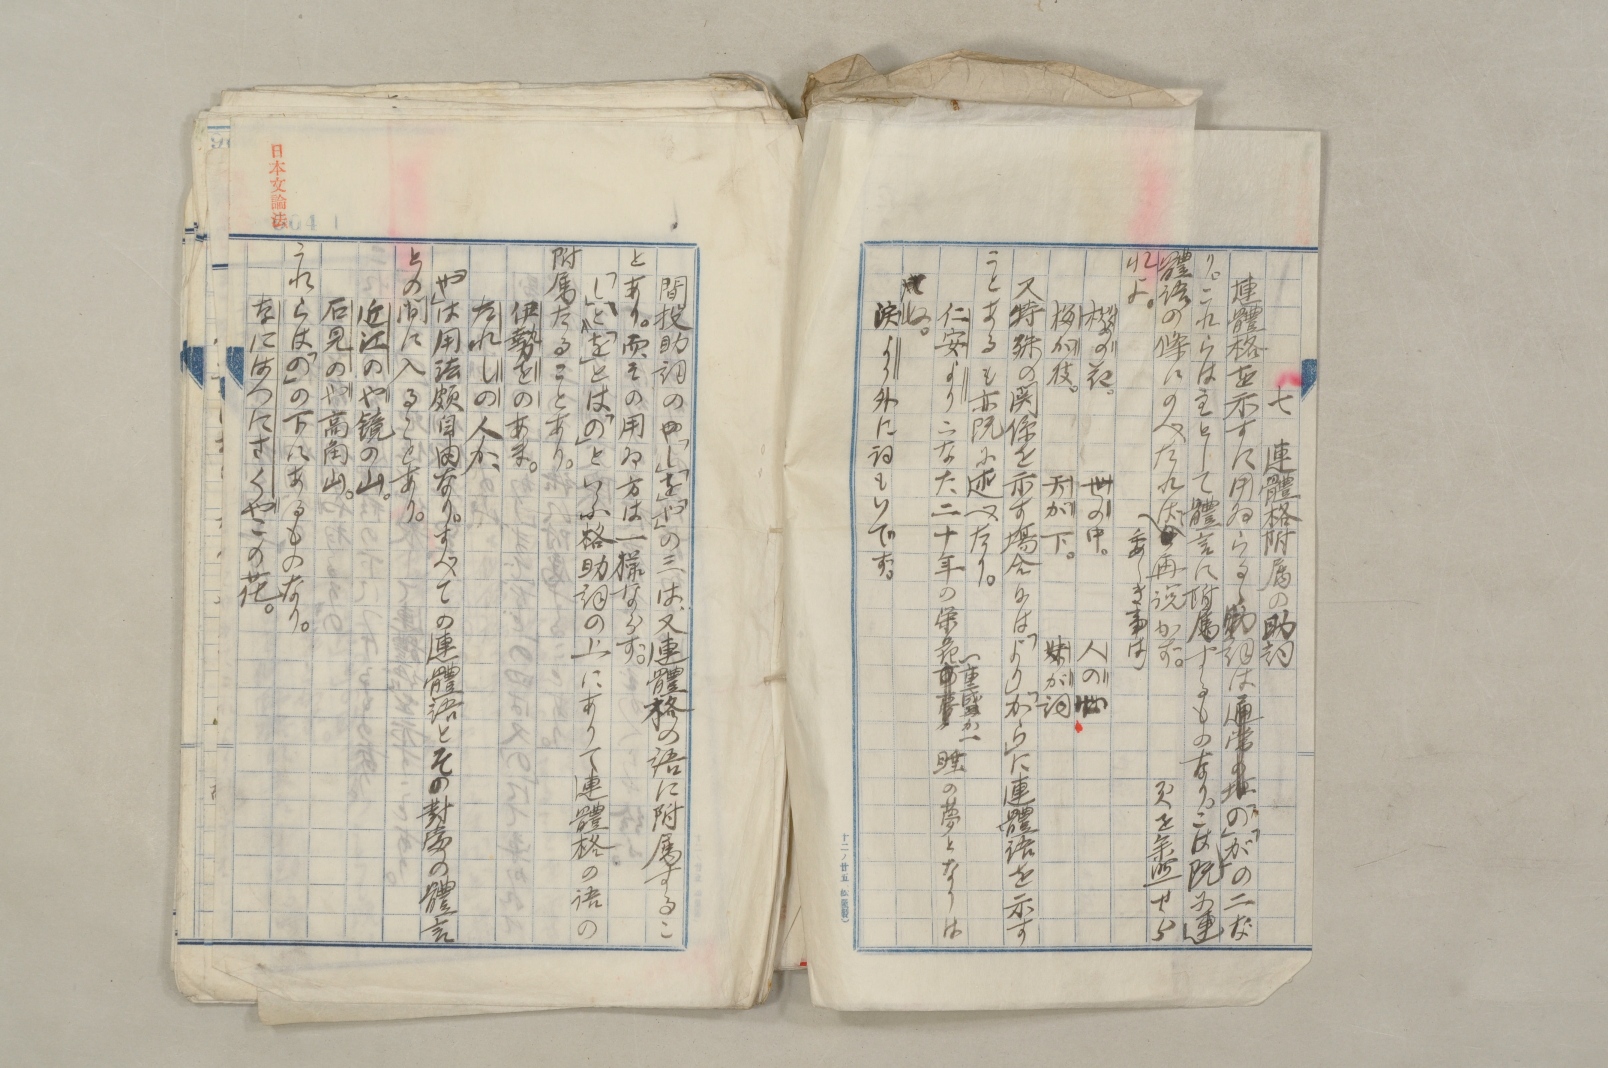 七 連體格附属の助詞
連體格を示すに用ゐらるゝ助詞は「の」「が」の二な
り。これらは主として體言に附属するものなり。こは既に連
體語の條にのべたれば再説かず。
委しき事は
れよ。
櫻の花。 世の中。 人の世
梅が枝。 天が下。 妹が詞
又特殊の関係を示す場合には「より」「から」に連體語を示す
うとあるも亦既に述べたり。
仁安よりこなた二十年の栄花 一睡の夢となりは
(重盛が)
涙より外に詞もいでず。
十二ノ廿五 松屋製
日本文論法
間投助詞の「し」「を」「や」の三は、又連體格の語に附属するこ
とあり。而その用ゐ方は一様ならず。
「し」と「を」とは「の」といふ格助詞の上にありて連體格の語の
附属たることあり。
伊勢をのあま。
たれしの人か
「や」は用法頗自由なり。すべての連體語とその對象の體言
との間に入ることあり。
近江のや鏡の山。
石見のや高角山。
これらは「の」の下にあるものなり。
なにはつにさくやこの花。